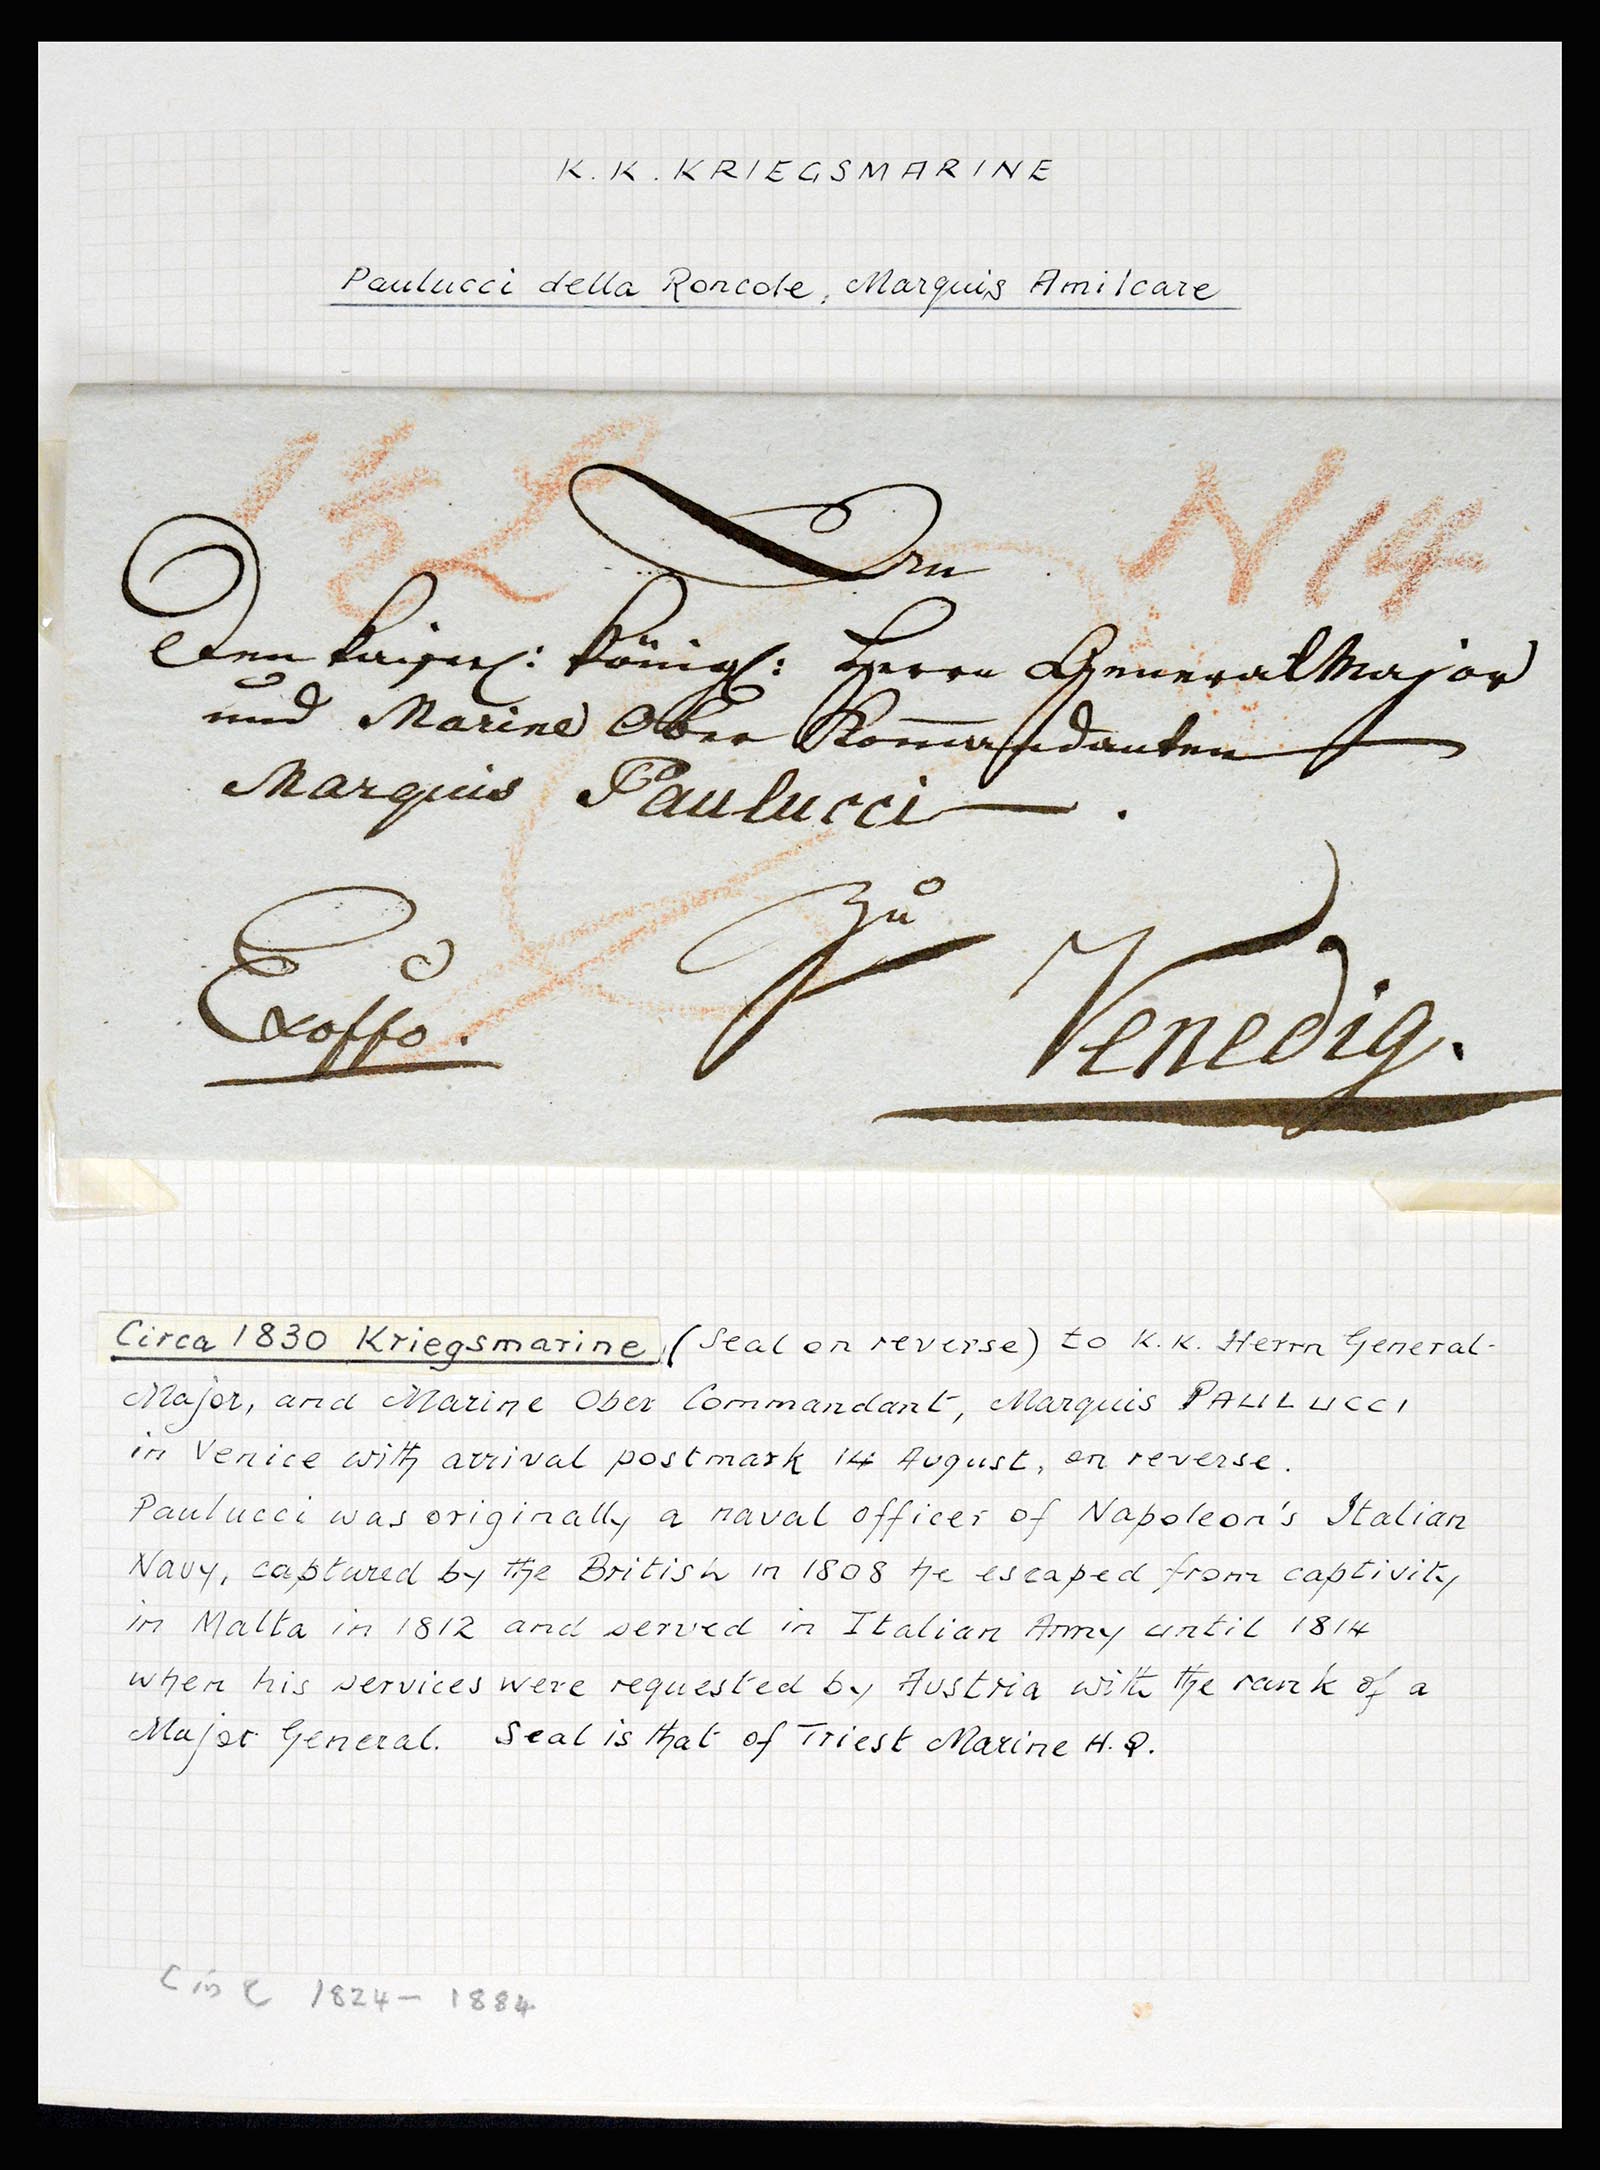 K. K. KRIEGSMARINE
Paulucci della Roncole, Marquis Amilcare
1½ L
N 14
Den kaiserl: königl: Herrn General Major
und Marine Ober Kommandanten
Marquis Paulucci
zu
Exoffo.
Venedig.
Circa 1830 Kriegsmarine, (Seal on reverse) to K.K. Herrn General-
Major, and Marine Ober Commandant, Marquis PAULUCCI
in Venice with arrival postmark 14 August, on reverse.
Paulucci was originally a naval officer of Napoleon's Italian
Navy, captured by the British in 1808 he escaped from captivity
in Malta in 1812 and served in Italian Army until 1814
when his services were requested by Austria with the rank of a
Major General. Seal is that of Triest Marine H.Q.
1824 - 1884